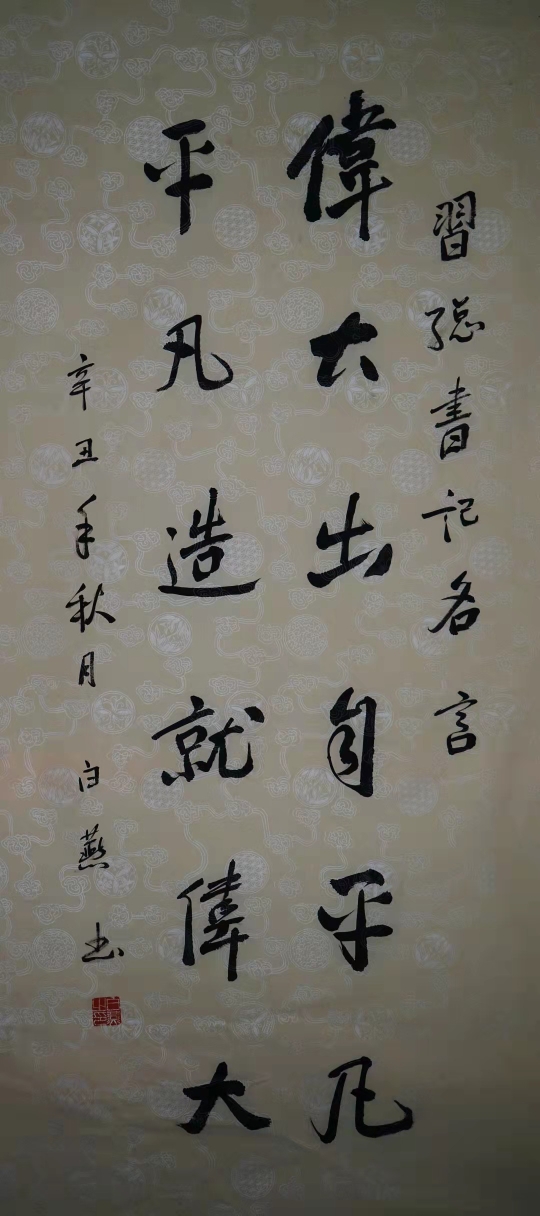 習總書記名言
偉大出自平凡
平凡造就偉大
辛丑年秋月 白燕书